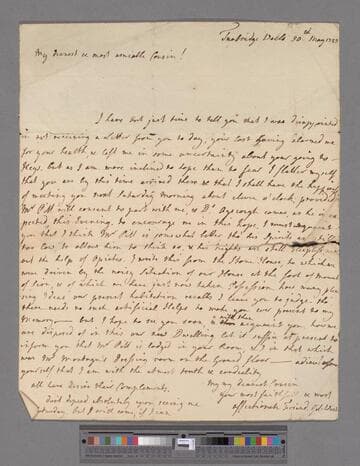 Tunbridge Wells 30th May 1753
My dearest & most amiable Cousin!
I have but just time to tell you that I was disappointed
in not receiving a Letter from you to day, your last having alarmed me
for your health & left me in some uncertainty about your going to
Hayes. but as I am more inclined to hope than to fear I flatter myself
that you are by this time arrived there & that I shall have the happiness
of meeting you next Saturday morning about eleven o'clock, provided
Mr Pitt will consent to part with me, & Dr Ayscough comes, as he is ex-
pected this Evening, to encourage me in this hope, I must
you that I think Mr Pitt is somewhat better tho' his Spirits are still
too low to allow him to think so, & his nights are still sleepless
out the help of Opiates. I write this from the Stone House, to which we
were driven by the noisy situation of our House at the foot of Mount
Sion, & of which we have just now taken Possession. how many plea
sing Ideas our present habitation recalls I leave you to judge. tho
there need no such artificial Helps to make you ever present to my
Memory — but I hope to see you soon & will then acquaint you, how we
are disposed of in this our new Dwelling let it suffice at present to
inform you that Mr Pitt is lodged in your Room, & I in that which
was Mr Montagu's Dressing room on the Ground floor — adieu believe
yourself that I am with the utmost truth & cordiality
My dearest Cousin
all here desire their Compliments.
Your most faithful & most
affectionate Friend
don't depend absolutely upon seeing me
Saturday, but I will come, if I can